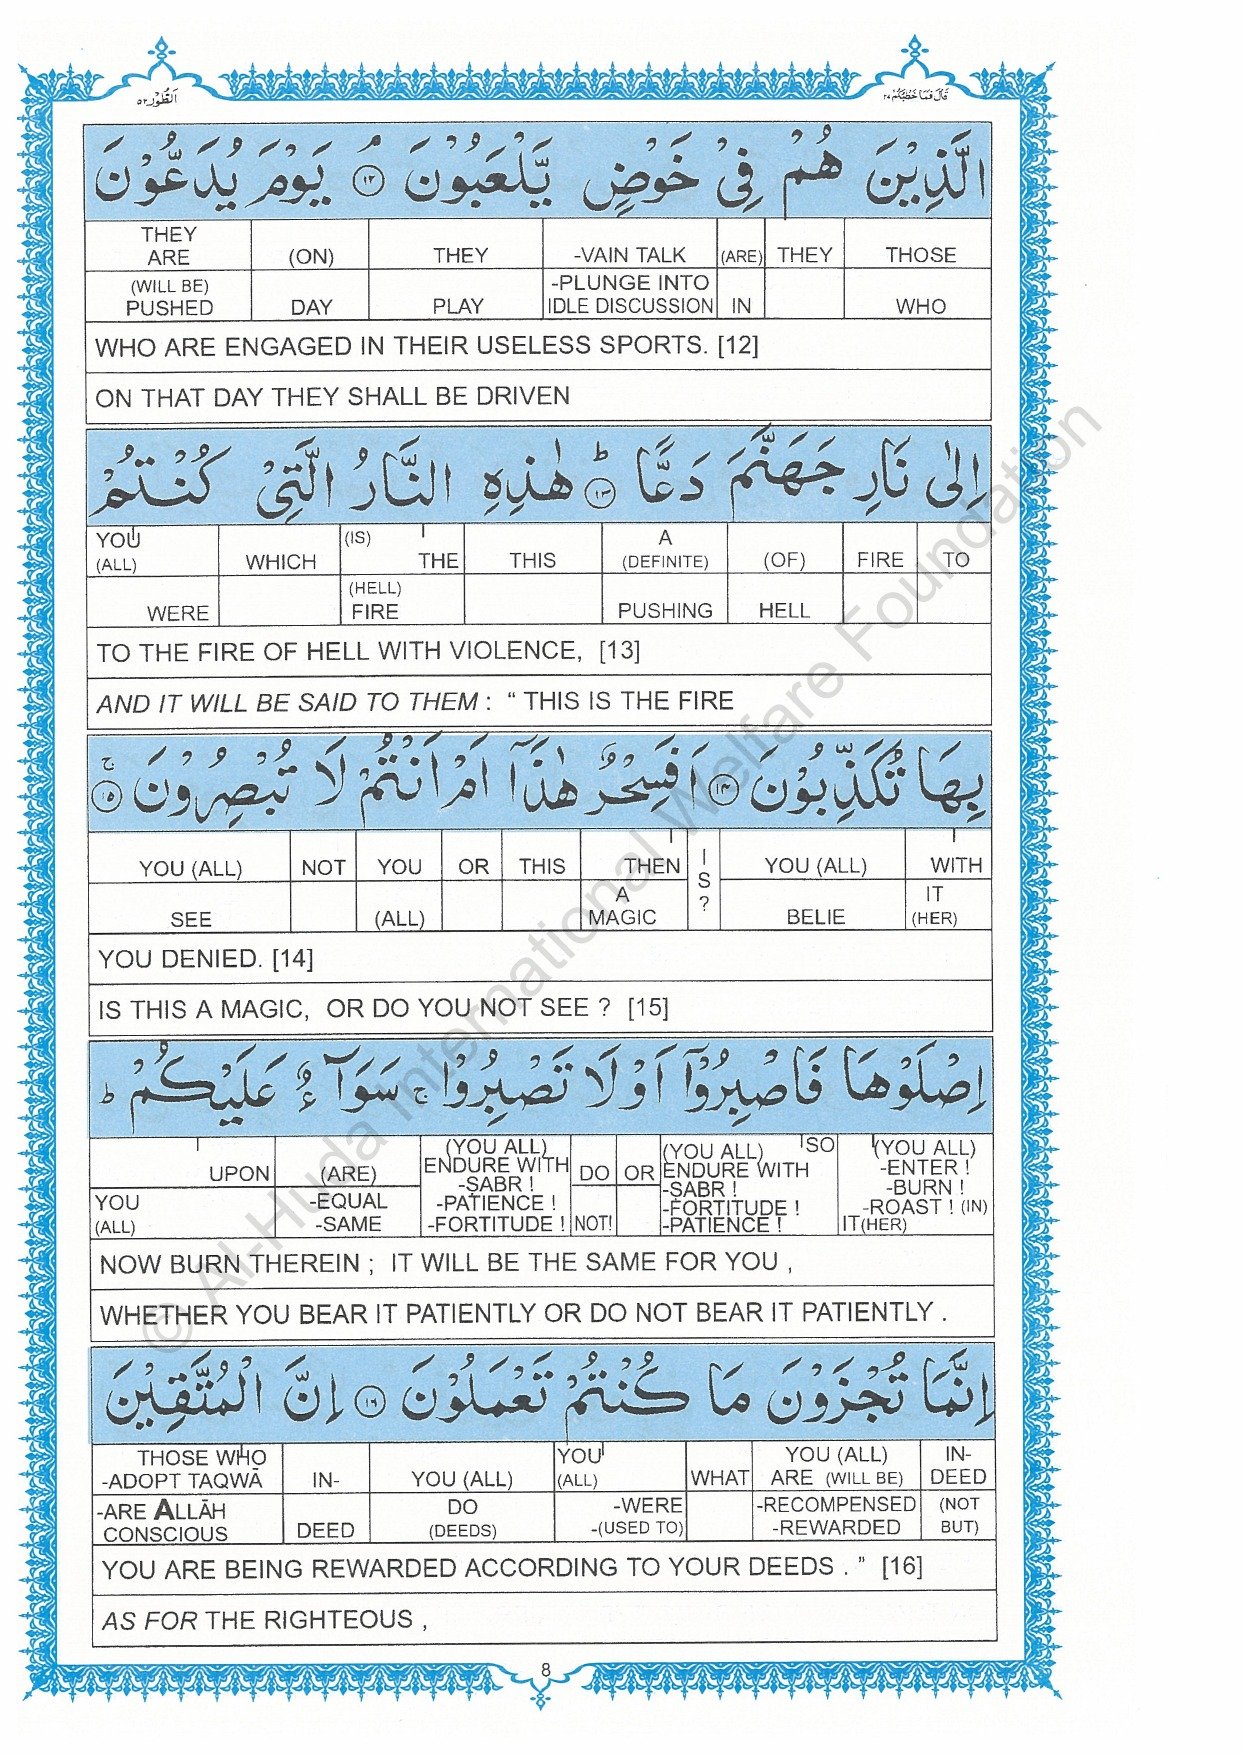 الطُّوْر ٥٢
قَالَ فَمَا خَطْبُكُمْ ٢٧
الَّذِيْنَ هُمْ فِيْ خَوْضٍ يَّلْعَبُوْنَ ۝١٢ۘ يَوْمَ يُدَعُّوْنَ
THEY ARE (ON) THEY -VAIN TALK (ARE) THEY THOSE
(WILL BE) PUSHED DAY PLAY -PLUNGE INTO IDLE DISCUSSION IN WHO
WHO ARE ENGAGED IN THEIR USELESS SPORTS. [12]
ON THAT DAY THEY SHALL BE DRIVEN
اِلٰى نَارِ جَهَنَّمَ دَعًّا ۝١٣ؕ هٰذِهِ النَّارُ الَّتِيْ كُنْتُمْ
YOU (ALL) WHICH (IS) THE THIS A (DEFINITE) (OF) FIRE TO
WERE (HELL) FIRE PUSHING HELL
TO THE FIRE OF HELL WITH VIOLENCE, [13]
AND IT WILL BE SAID TO THEM : “ THIS IS THE FIRE
بِهَا تُكَذِّبُوْنَ ۝١٤ اَفَسِحْرٌ هٰذَآ اَمْ اَنْتُمْ لَا تُبْصِرُوْنَ ۝١٥ۚ
YOU (ALL) NOT YOU OR THIS THEN IS? YOU (ALL) WITH
SEE (ALL) A MAGIC BELIE IT (HER)
YOU DENIED. [14]
IS THIS A MAGIC, OR DO YOU NOT SEE ? [15]
اِصْلَوْهَا فَاصْبِرُوْٓا اَوْ لَا تَصْبِرُوْا ۚ سَوَآءٌ عَلَيْكُمْ ؕ
UPON (ARE) (YOU ALL) ENDURE WITH -SABR ! DO OR (YOU ALL) SO ENDURE WITH (YOU ALL) -ENTER !
YOU (ALL) -EQUAL -SAME -PATIENCE ! -FORTITUDE ! NOT! -SABR ! -FORTITUDE ! -PATIENCE ! -BURN ! -ROAST ! (IN) IT(HER)
NOW BURN THEREIN ; IT WILL BE THE SAME FOR YOU ,
WHETHER YOU BEAR IT PATIENTLY OR DO NOT BEAR IT PATIENTLY .
اِنَّمَا تُجْزَوْنَ مَا كُنْتُمْ تَعْمَلُوْنَ ۝١٦ اِنَّ الْمُتَّقِيْنَ
THOSE WHO -ADOPT TAQWĀ IN- YOU (ALL) YOU (ALL) WHAT YOU (ALL) ARE (WILL BE) IN- DEED
-ARE ALLĀH CONSCIOUS DEED DO (DEEDS) -WERE -(USED TO) -RECOMPENSED -REWARDED (NOT BUT)
YOU ARE BEING REWARDED ACCORDING TO YOUR DEEDS . ” [16]
AS FOR THE RIGHTEOUS ,
8
© Al-Huda International Welfare Foundation